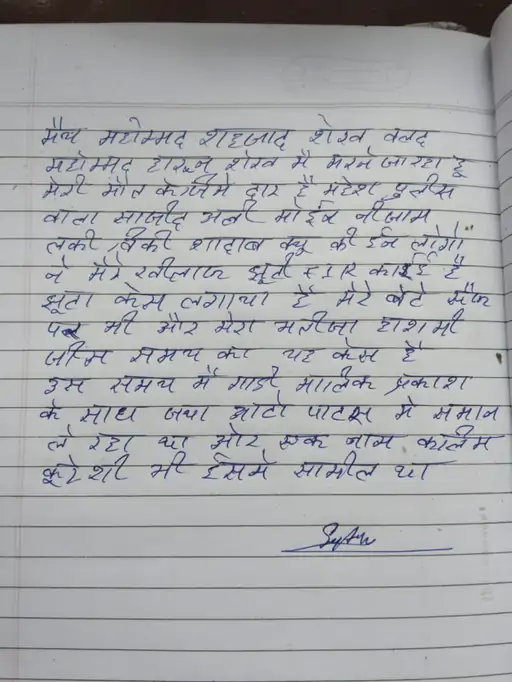 मैय महोम्मद शहजाद शेख वलद
महोम्मद हारून शेख मै मरने जा रहा हू
मेरी मौत का जिमे दार है महेश पुलीस
वाला साजीद अली मोईन नीजाम
लकी विकी शादाब क्यू की ईन लोगो
ने मेरे खीलाफ झूटी FIR काई है
झूटा केस लगाया है मेरे बेटे सैफ
पर भी और मेरा भतीजा हाशमी
जीस समय का यह केस है
इस समय मै गाडी मालिक प्रकाश
के साथ जया ओटो पाटस मे समान
ले रहा था और एक नाम कालिम
कूरेशी भी ईसमे सामील था